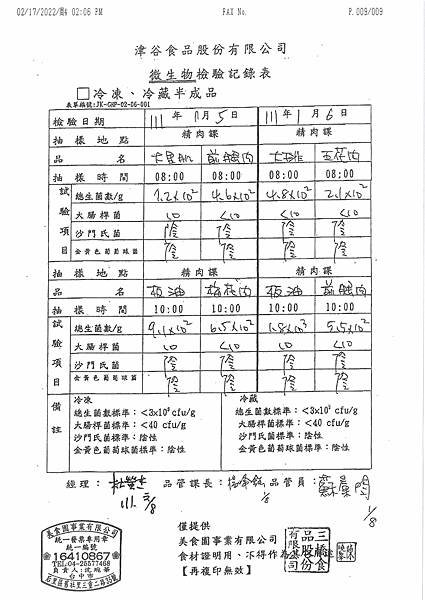 02/17/2022/四 02:06 PM FAX No. P.009/009
津谷食品股份有限公司
微生物檢驗記錄表
□冷凍、冷藏半成品
表單編號:JK-GHP-02-06-001
檢驗日期 111年1月5日 111年1月6日
抽樣地點 精肉課 精肉課
品名 前腿肉 大排 五花肉
抽樣時間 08:00 08:00 08:00 08:00
試驗項目
總生菌數/g 7.2x10² 4.6x10² 4.8x10² 2.1x10²
大腸桿菌 10 <10 <10 <10
沙門氏菌 陰 陰 陰 陰
金黃色葡萄球菌 陰 陰 陰 陰
抽樣地點 精肉課 精肉課
品名 板油 梅花肉 板油 前腿肉
抽樣時間 10:00 10:00 10:00 10:00
試驗項目
總生菌數/g 9.1x10² 6.5x10² 1.8x10³ 5.5x10²
大腸桿菌 10 <10 10 <10
沙門氏菌 陰 陰 陰 陰
金黃色葡萄球菌 陰 陰 陰 陰
備註
冷凍
總生菌數標準:<3x10⁶ cfu/g
大腸桿菌標準:<40 cfu/g
沙門氏菌標準:陰性
金黃色葡萄球菌標準:陰性
冷藏
總生菌數標準:<3x10⁶ cfu/g
大腸桿菌標準:<40 cfu/g
沙門氏菌標準:陰性
金黃色葡萄球菌標準:陰性
經理: 品管課長: 品管員:
111. 2/8 1/8 1/8
美食園事業有限公司
統一發票專用章
統一編號
16410867
TEL:04-25577468
台中市
僅提供
美食園事業有限公司
食材證明用、不得作為
【再複印無效】
三橋食品股份有限公司